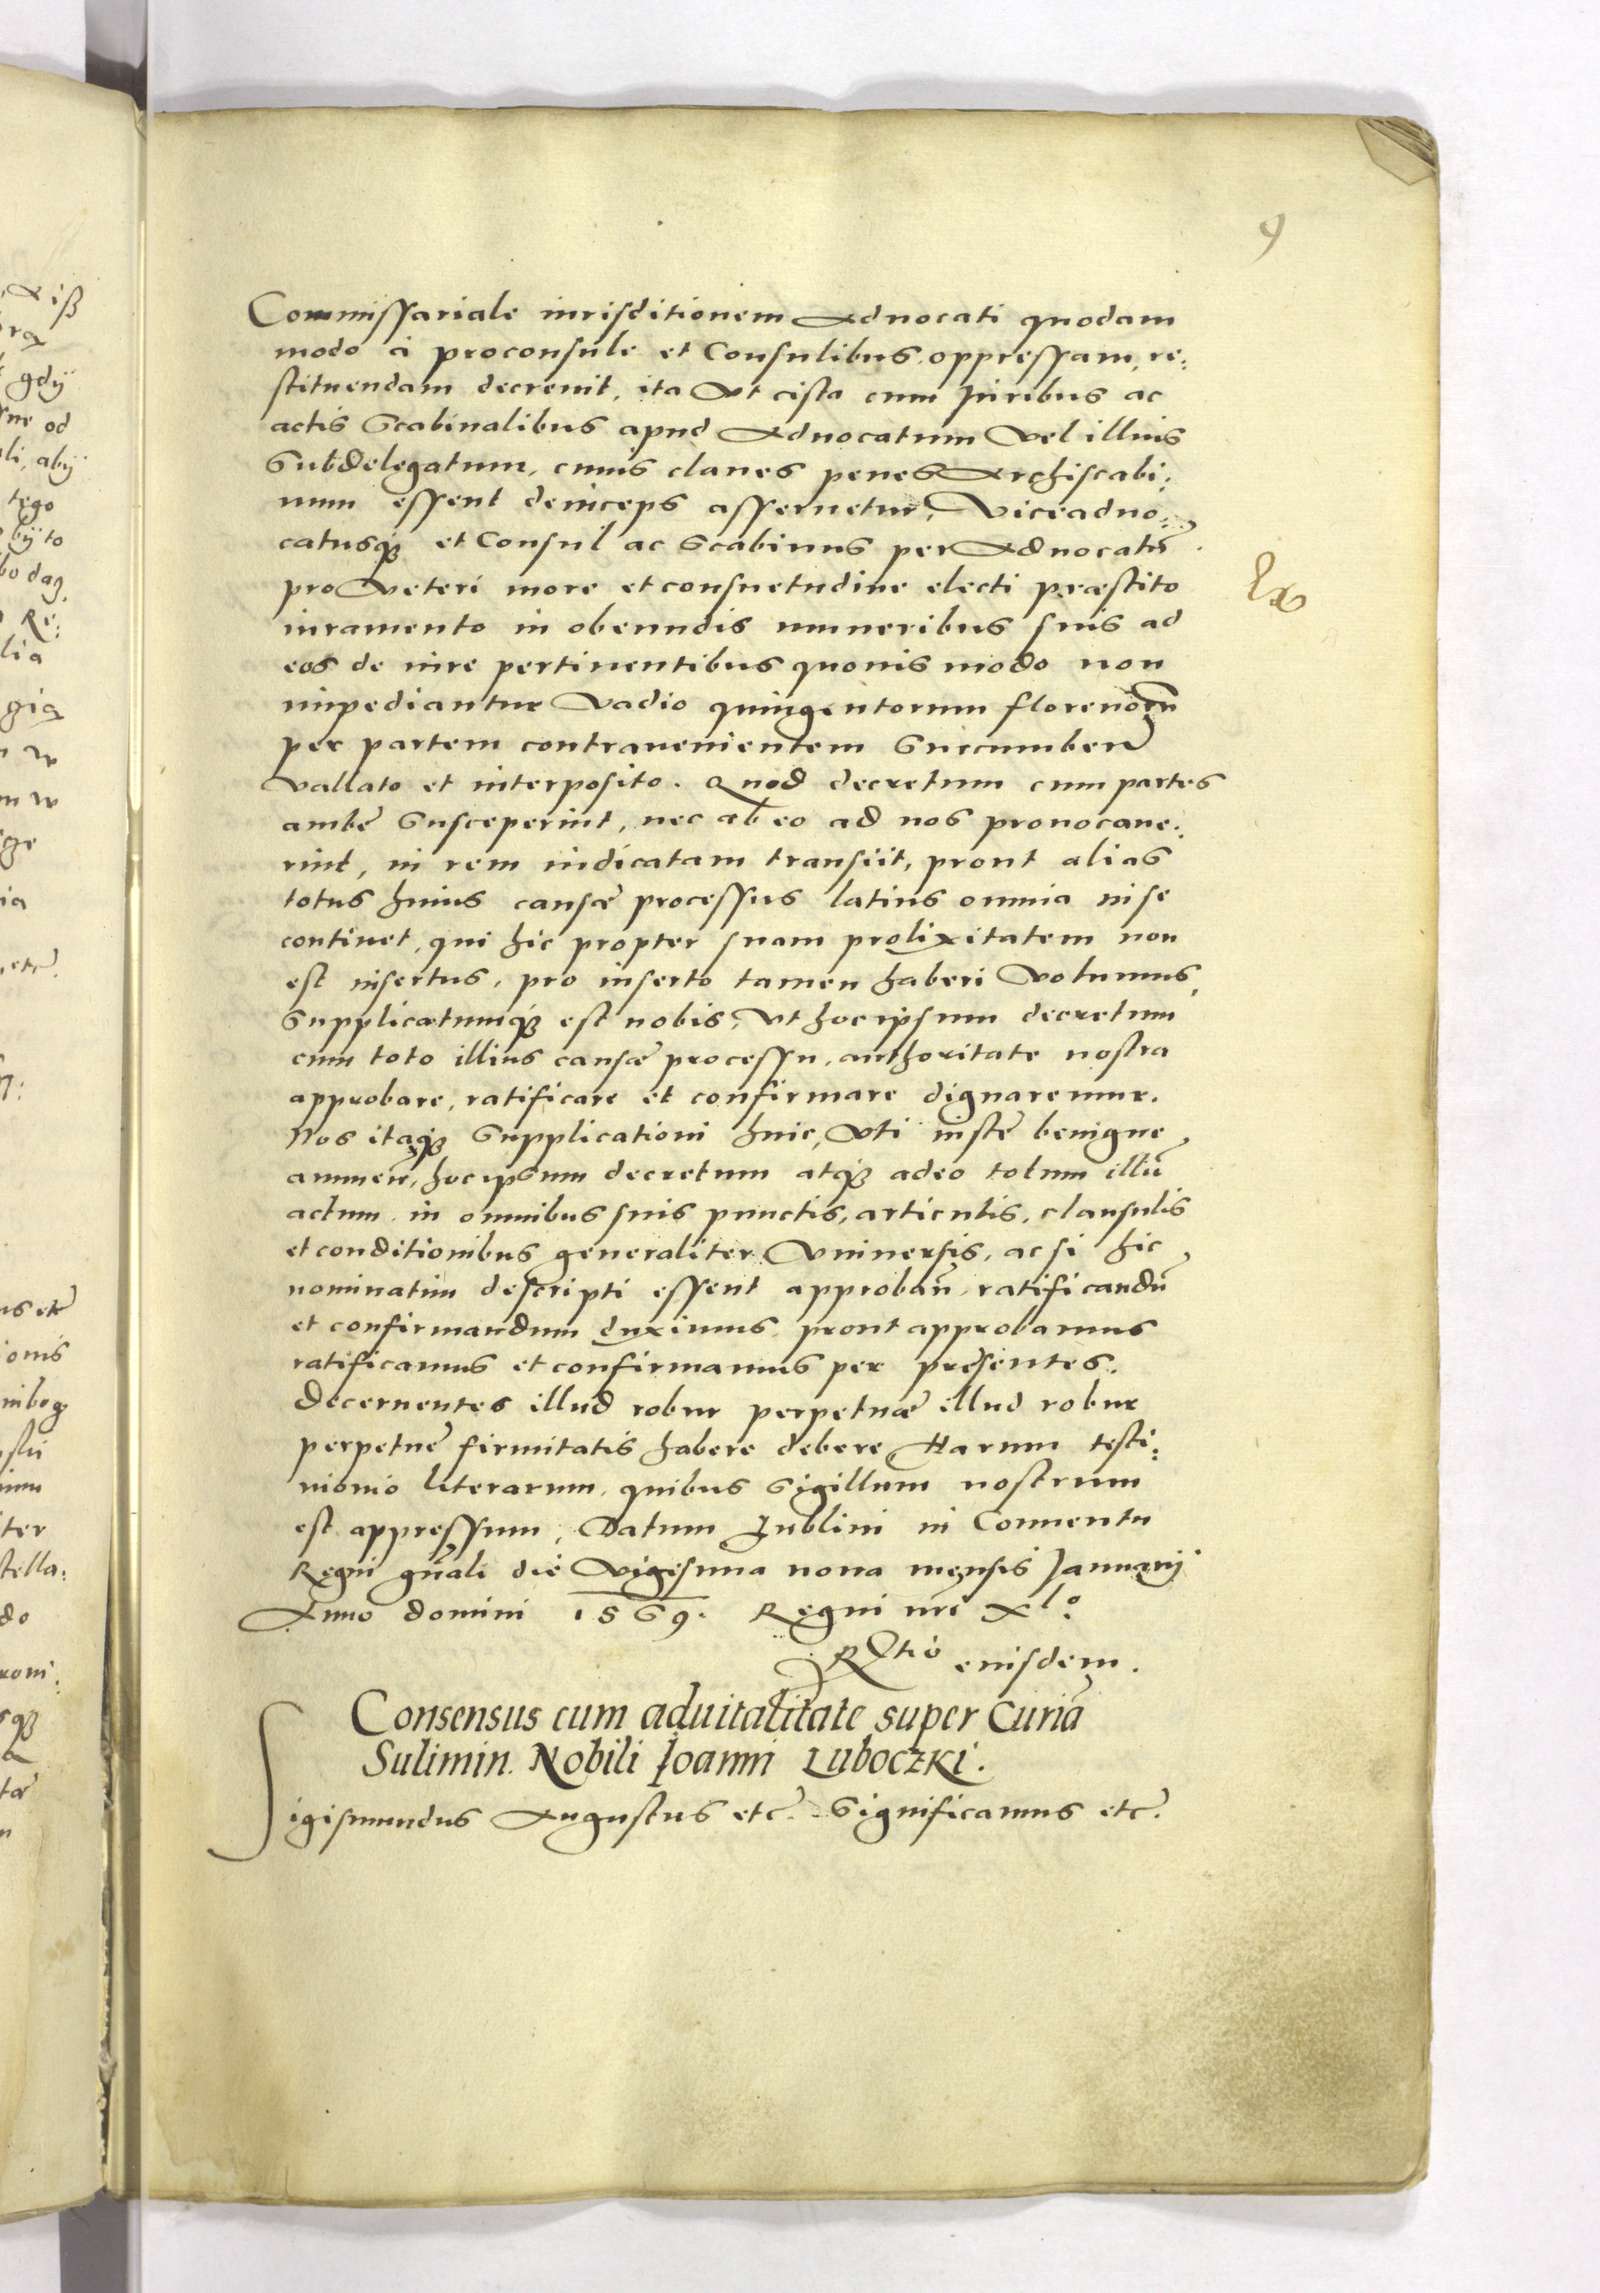 9
Commissariale iurisditionem Aduocati quodam
modo a proconsule et Consulibus oppressam, re:
stituendam decreuit, ita Vt cista cum Juribus ac
actis Scabinalibus apud Aduocatum Vel illius
Subdelegatum, cuius claues penes Archiscabi:
num essent deinceps asseruetur, Viceaduo:
catusq₃ et Consul ac Scabinus per Aduocatū
pro Veteri more et consuetudine electi præstito
iuramento in obeundis muneribus suis ad
eos de iure pertinentibus quouis modo non
impediantur Vadio quingentorum florenorū
per partem contrauenientem Succumben̄
Vallato et interposito. Quod decretum cum partes
ambę Susceperint, nec ab eo ad nos prouocaue:
rint, in rem iudicatam transiit, prout alias
totus huius causæ processus latius omnia in se
continet, qui hic propter suam prolixitatem non
est insertus, pro inserto tamen haberi Volumus,
Supplicatumq₃ est nobis, Vt hoc ipsum decretum
cum toto illius causæ processu, authoritate nostra
approbare, ratificare et confirmare dignaremur.
Nos itaq₃ Supplicationi huic, Vti iustę benigne
annuen̄, hoc ipsum decretum atq₃ adeo totum illū
actum in omnibus suis punctis, articulis, clausulis
et conditionibus generaliter Vniuersis, ac si hic
nominatim descripti essent approban̄, ratificandū
et confirmandum duximus, prout approbamus
ratificamus et confirmamus per presentes.
Decernentes illud robur perpetuæ illud robur
perpetuę firmitatis habere debere Harum testi:
monio literarum, quibus Sigillum nostrum
est appressum, Datum Lublini in Conuentu
Regni gn̄ali die Vigesima nona mensis Januarij
Anno domini 1569. Regni nr̄i xlo.
Rtio eiusdem.
Consensus cum aduitalitate super Curiā
Sulimin. Nobili Joanni Luboczki.
Sigismundus Augustus etc. Significamus etc.